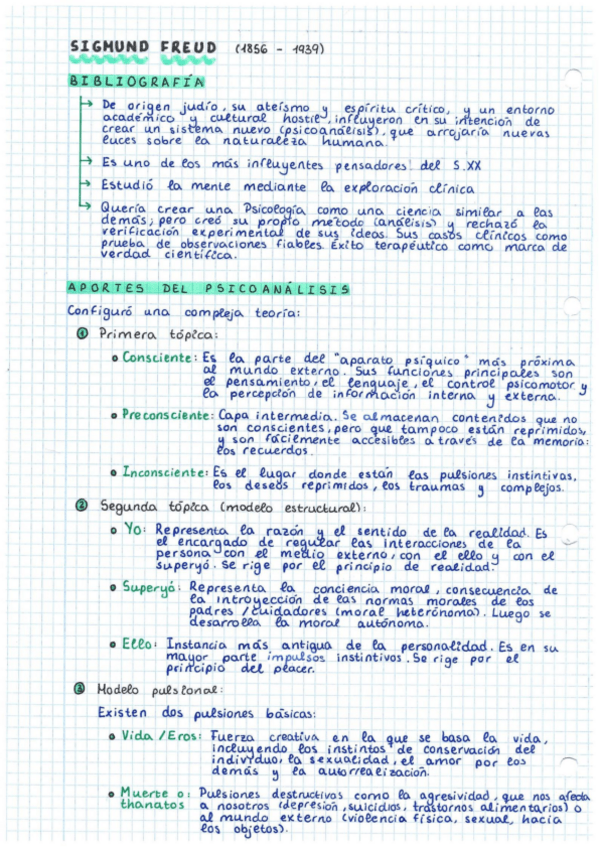 SIGMUND FREUD (1856 - 1939)
BIBLIOGRAFÍA
De origen judío, su ateísmo y espíritu crítico, y un entorno
académico y cultural hostil, influyeron en su intención de
crear un sistema nuevo (psicoanálisis), que arrojaría nuevas
luces sobre la naturaleza humana.
Es uno de los más influyentes pensadores del S.XX
Estudió la mente mediante la exploración clínica
Quería crear una Psicología como una ciencia similar a las
demás, pero creó su propio método (análisis) y rechazó la
verificación experimental de sus ideas. Sus casos clínicos como
prueba de observaciones fiables. Éxito terapéutico como marca de
verdad científica.
APORTES DEL PSICOANÁLISIS
Configuró una compleja teoría:
① Primera tópica:
• Consciente: Es la parte del "aparato psíquico" más próxima
al mundo externo. Sus funciones principales son
el pensamiento, el lenguaje, el control psicomotor y
la percepción de información interna y externa.
• Preconsciente: Capa intermedia. Se almacenan contenidos que no
son conscientes, pero que tampoco están reprimidos,
y son fácilmente accesibles a través de la memoria:
los recuerdos.
• Inconsciente: Es el lugar donde están las pulsiones instintivas,
los deseos reprimidos, los traumas y complejos.
② Segunda tópica (modelo estructural):
• Yo: Representa la razón y el sentido de la realidad. Es
el encargado de regular las interacciones de la
persona con el medio externo, con el ello y con el
superyó. Se rige por el principio de realidad.
• Superyó: Representa la conciencia moral, consecuencia de
la introyección de las normas morales de los
padres / cuidadores (moral heterónoma). Luego se
desarrolla la moral autónoma.
• Ello: Instancia más antigua de la personalidad. Es en su
mayor parte impulsos instintivos. Se rige por el
principio del placer.
③ Modelo pulsional:
Existen dos pulsiones básicas:
• Vida / Eros: Fuerza creativa en la que se basa la vida,
incluyendo los instintos de conservación del
individuo, la sexualidad, el amor por los
demás y la autorrealización.
• Muerte o: Pulsiones destructivas como la agresividad, que nos afecta
thanatos a nosotros (depresión, suicidios, trastornos alimentarios) o
al mundo externo (violencia física, sexual, hacia
los objetos).